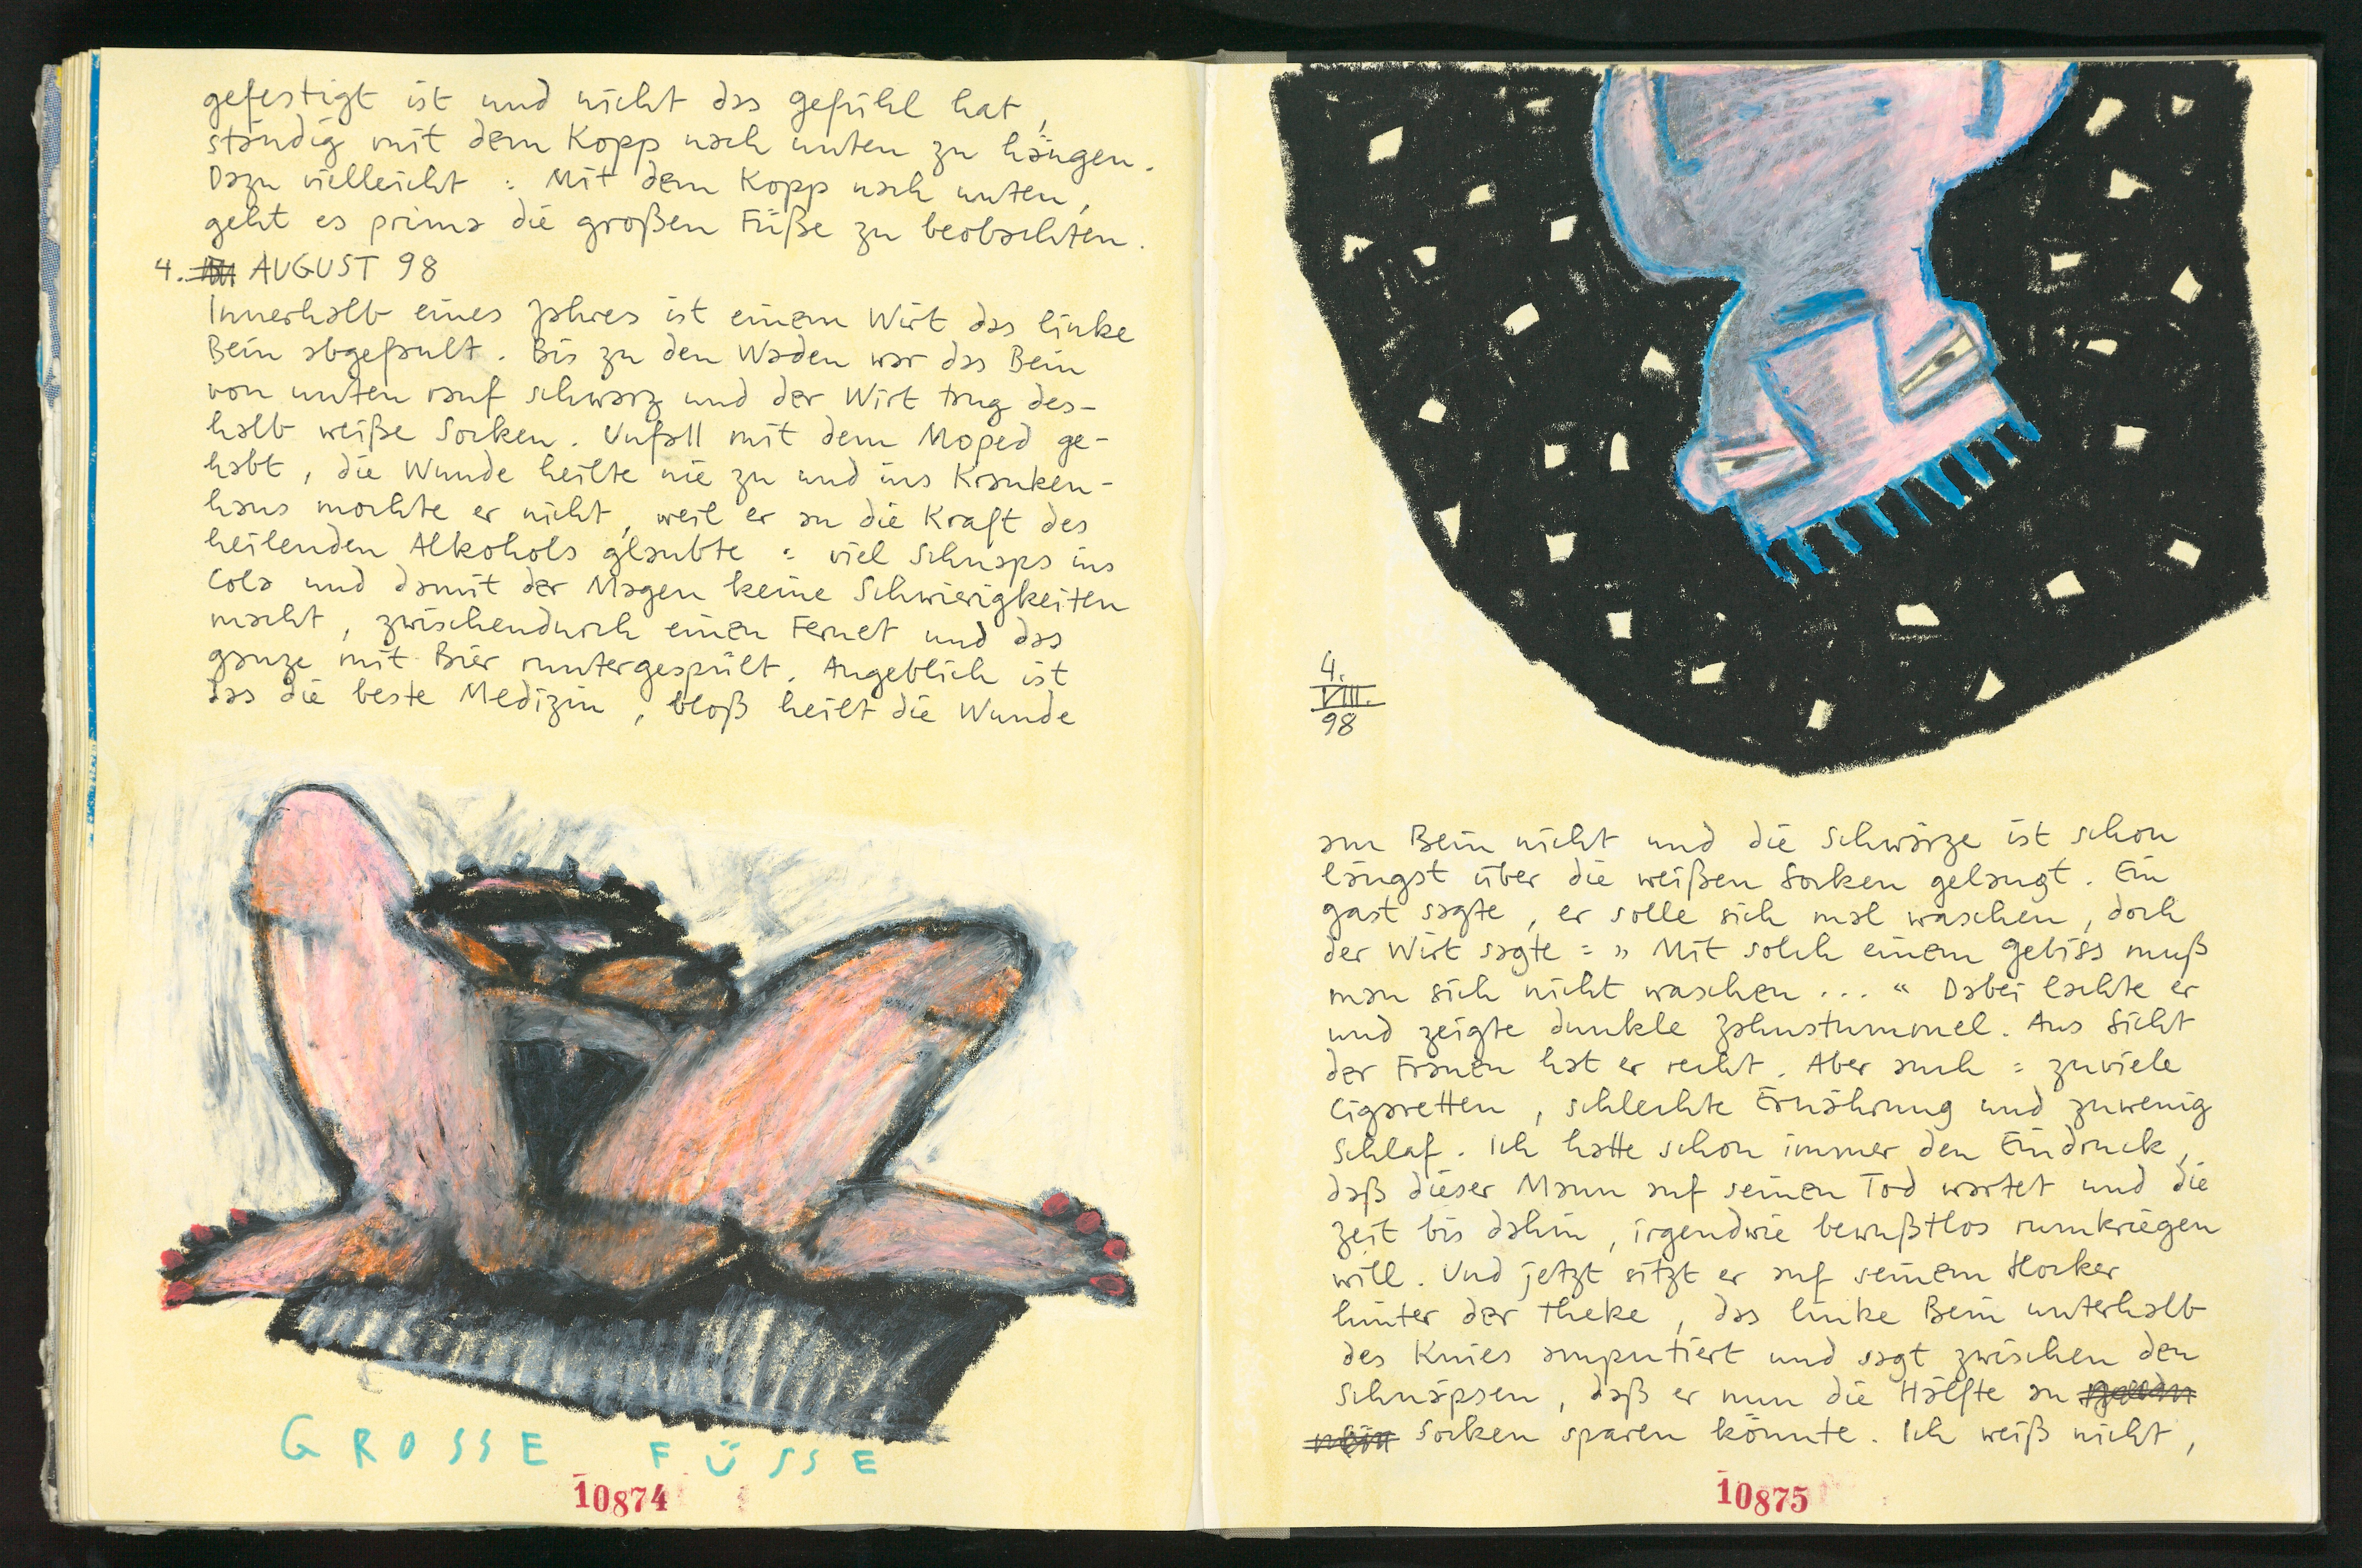 gefestigt ist und nicht das gefühl hat,
ständig mit dem Kopp nach unten zu hängen.
Dazu vielleicht: Mit dem Kopp nach unten,
geht es prima die großen Füße zu beobachten.
4. AUGUST 98
Innerhalb eines Jahres ist einem Wirt das linke
Bein abgefault. Bis zu den Waden war das Bein
von unten rauf schwarz und der Wirt trug des-
halb weiße Socken. Unfall mit dem Moped ge-
habt, die Wunde heilte nie zu und ins Kranken-
haus mochte er nicht, weil er an die Kraft des
heilenden Alkohols glaubte: viel Schnaps ins
Cola und damit der Magen keine Schwierigkeiten
macht, zwischendurch einen Fernet und das
ganze mit Bier runtergespült. Angeblich ist
das die beste Medizin, bloß heilt die Wunde
GROSSE FÜSSE
10874
4.
VIII.
98
am Bein nicht und die Schwärze ist schon
längst über die weißen Socken gelangt. Ein
gast sagte, er solle sich mal waschen, doch
der Wirt sagte: „Mit solch einem gebiss muß
man sich nicht waschen..." Dabei lachte er
und zeigte dunkle Zahnstummel. Aus Sicht
der Frauen hat er recht. Aber auch: zuviele
Cigaretten, schlechte Ernährung und zuwenig
Schlaf. Ich hatte schon immer den Eindruck,
daß dieser Mann auf seinen Tod wartet und die
Zeit bis dahin, irgendwie bewußtlos rumkriegen
will. Und jetzt sitzt er auf seinem Hocker
hinter der Theke, das linke Bein unterhalb
des Knies amputiert und sagt zwischen den
Schnäpsen, daß er nun die Hälfte an
Socken sparen könnte. Ich weiß nicht,
10875